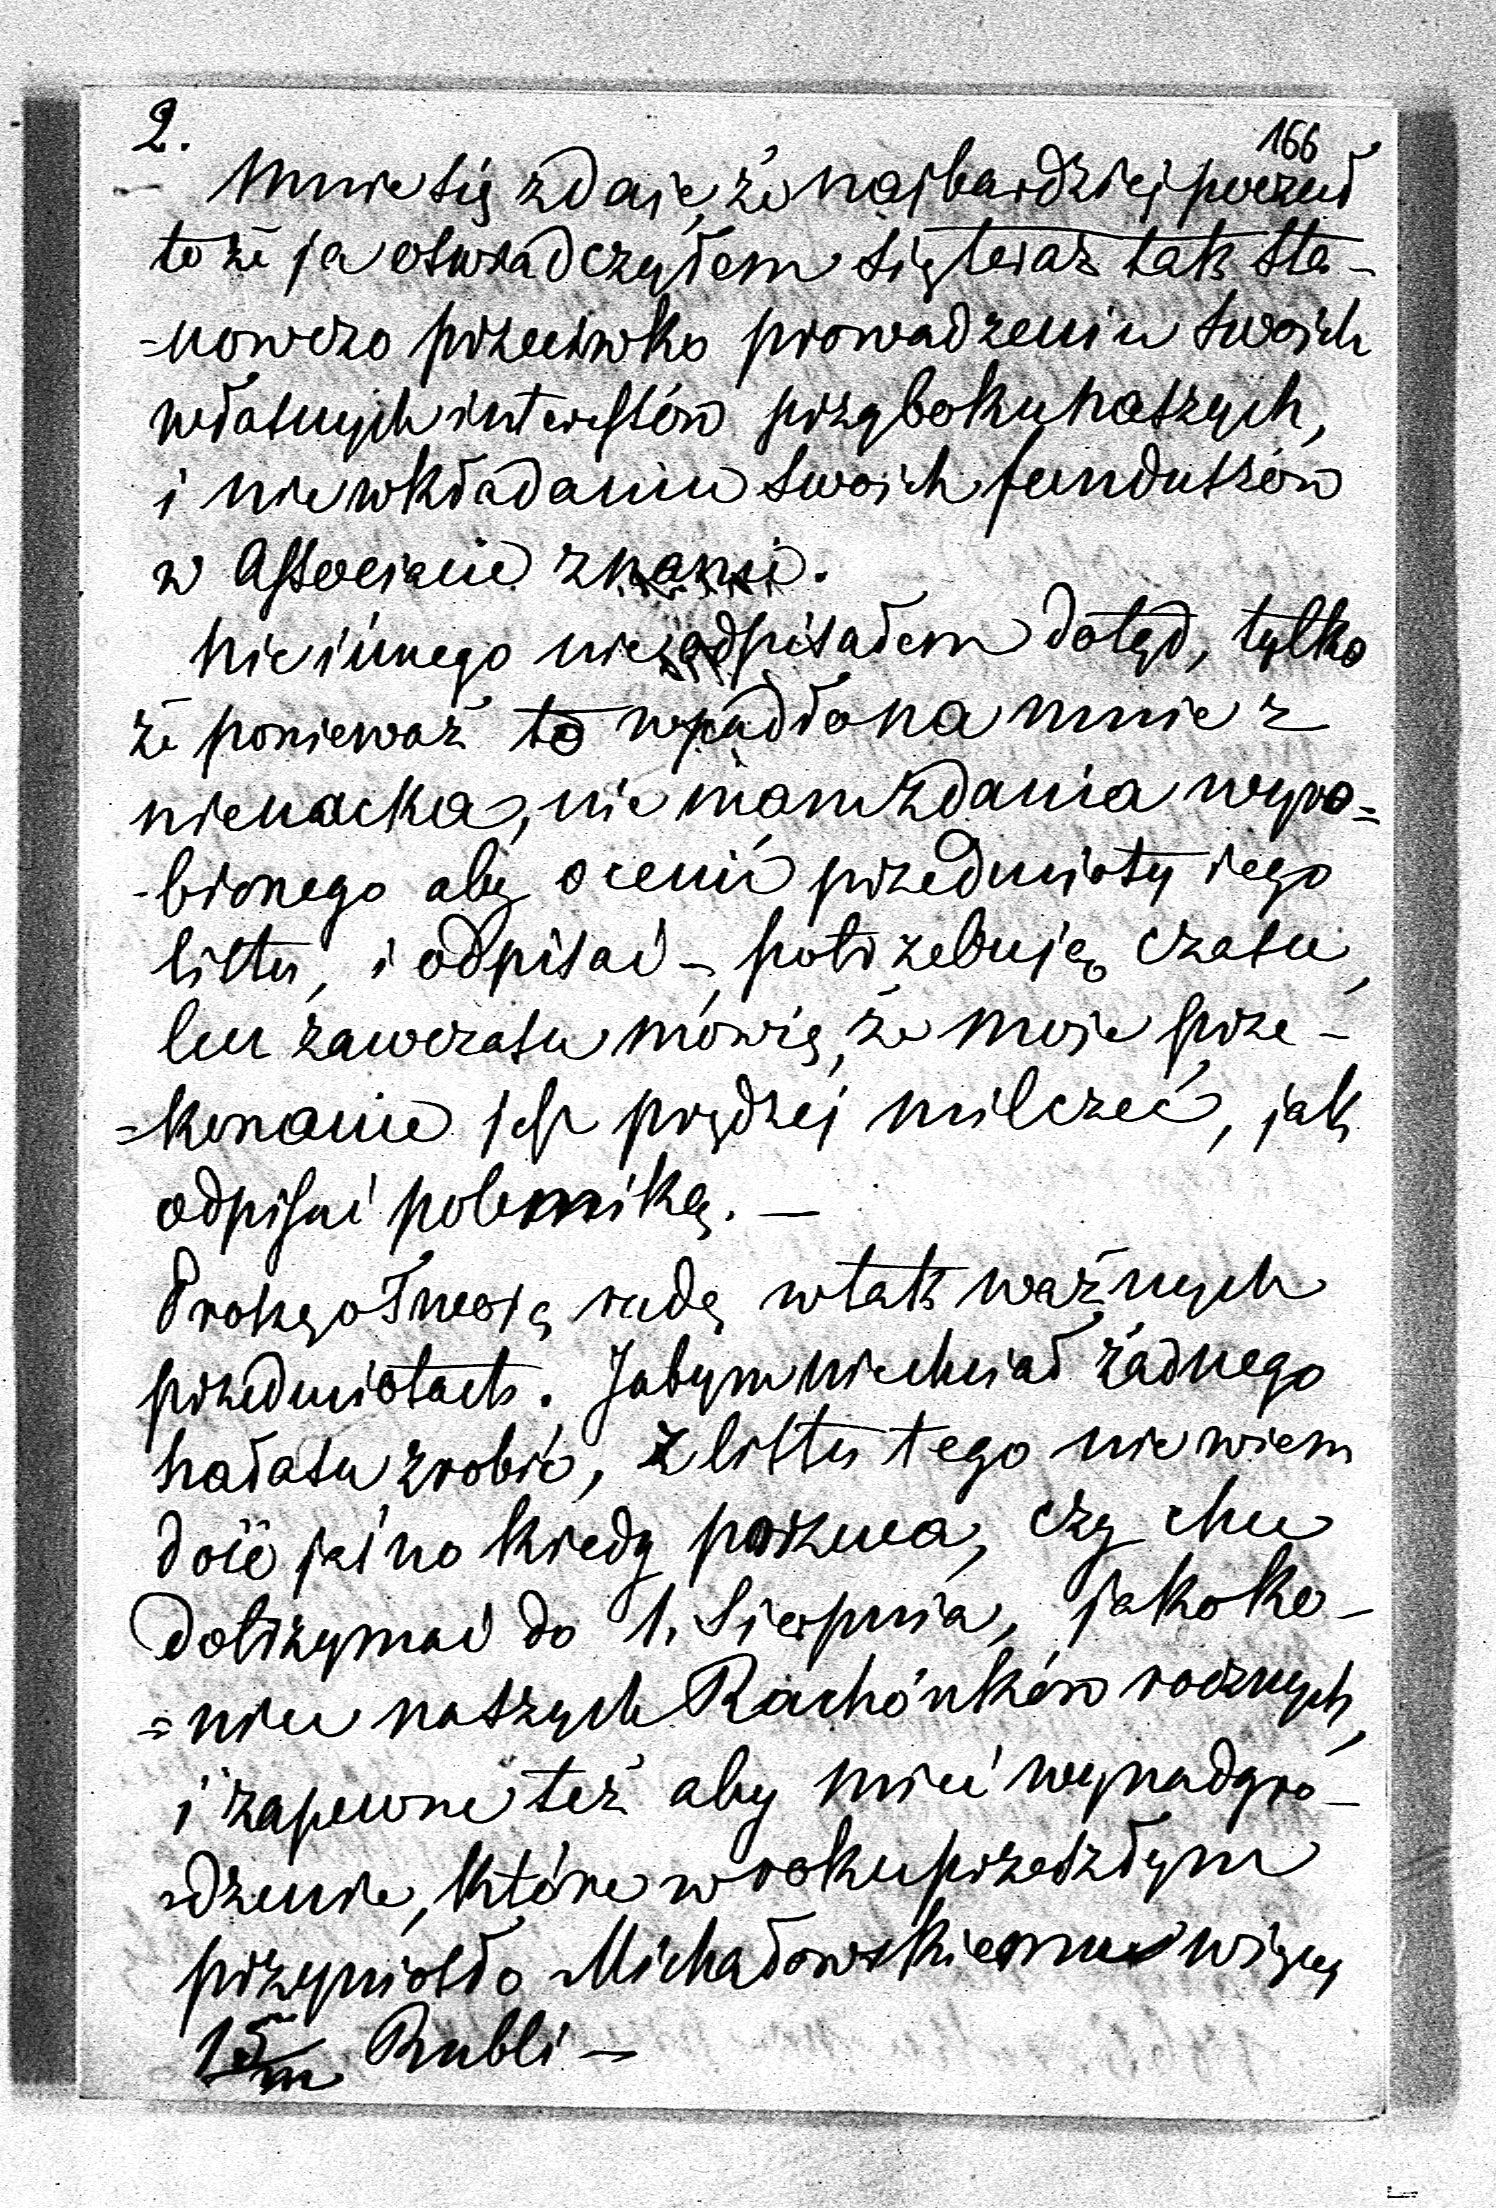 2.
166
Mnie się zdaie, że najbardziej poczuł
to że ja oswiadczyłem się teraz tak sta-
=nowczo przeciwko prowadzeniu swoich
własnych interessów przy boku naszych,
i nie wkładaniu swoich funduszów
w Associacie z nami.
Nic innego nie odpisałem dotąd, tylko
że ponieważ to wpadło na mnie z
nienacka, nie mam zdania wyro=
-bionego aby ocenić przedmioty iego
listu, i odpisać – potrzebuję czasu,
lecz zawczasu mówię, że moje prze-
=konanie jest prędzej milczeć, jak
odpisać polemiką. —
Proszę o Twoią radę w tak ważnych
przedmiotach. Jabym niechciał żadnego
hałasu zrobić, z listu tego nie wiem
dość jasno kiedy porzuca, czy chce
dotrzymać do 1. Sierpnia, jako ko-
=niec naszych Rachónków rocznych,
i zapewne też aby mieć wynadgro-
=dzenie, które w roku przeszłym
przyniosło Michałowskiemu więcej
15/m Rubli —